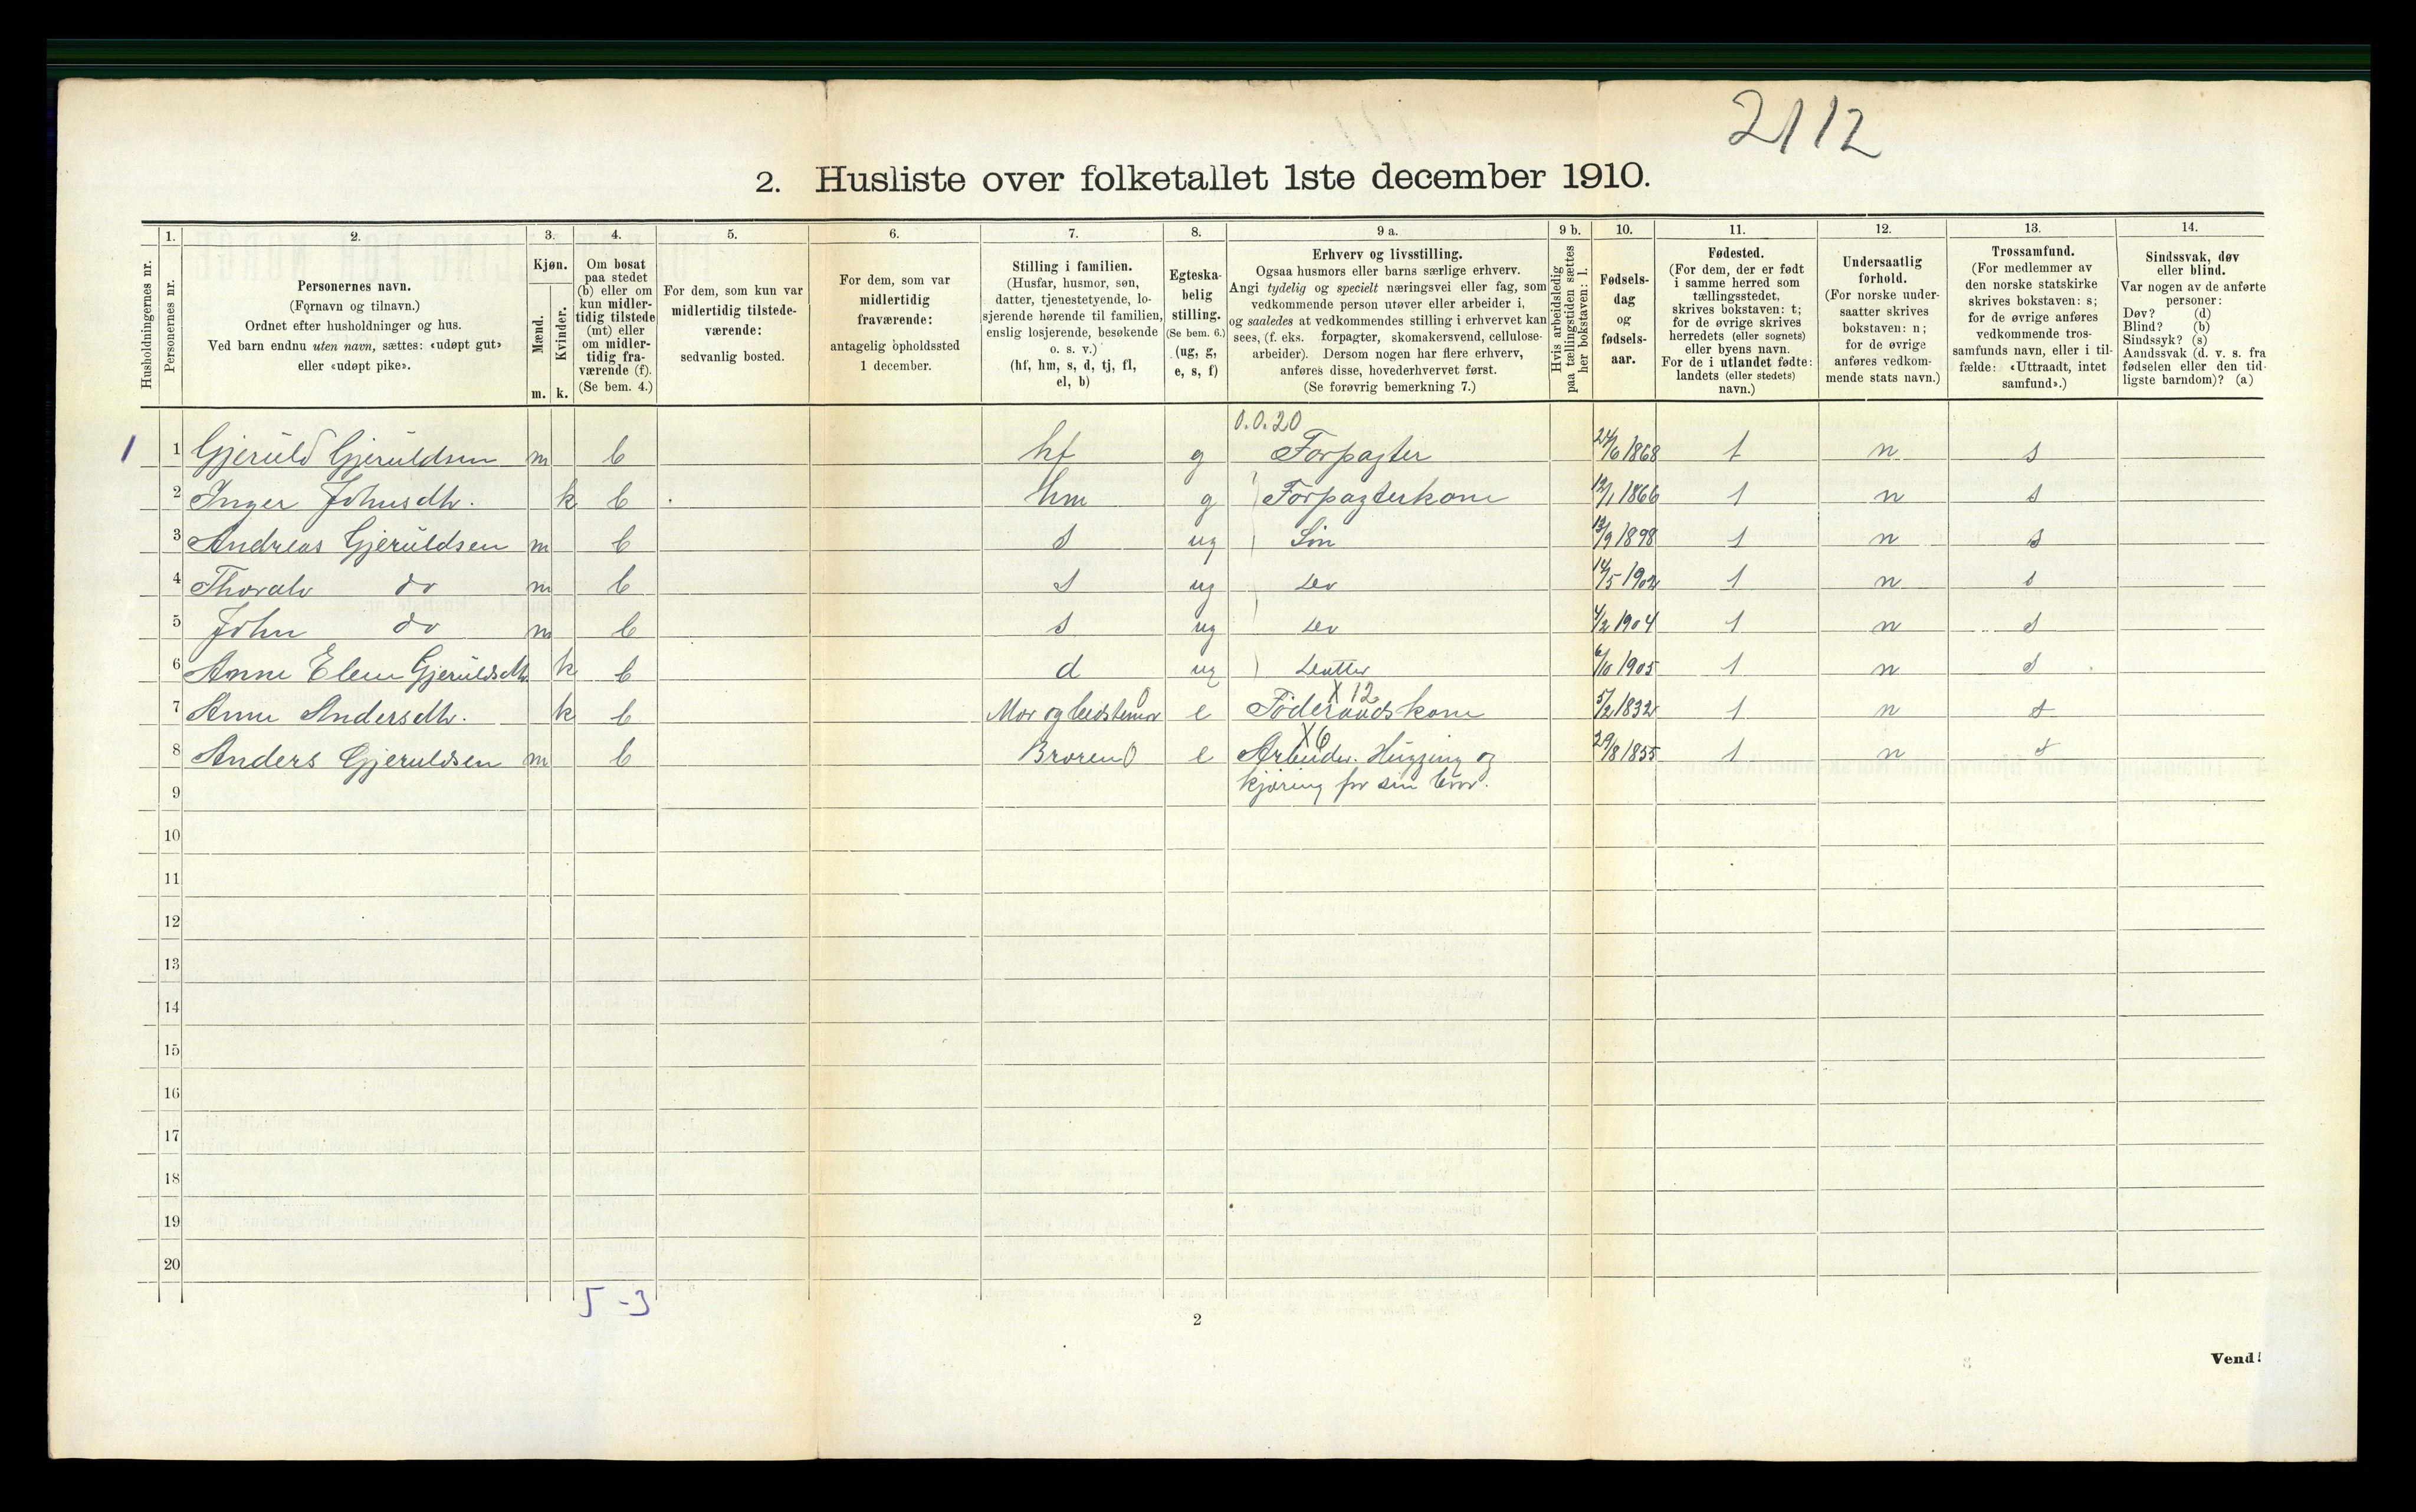 2112
2. Husliste over folketallet 1ste december 1910.
Husholdningernes nr.
1.
Personernes nr.
2.
Personernes navn.
(Fornavn og tilnavn.)
Ordnet efter husholdninger og hus.
Ved barn endnu uten navn, sættes: «udøpt gut»
eller «udøpt pike».
3.
Kjøn.
Mænd.
Kvinder.
m. k.
4.
Om bosat
paa stedet
(b) eller om
kun midler-
tidig tilstede
(mt) eller
om midler-
tidig fra-
værende (f).
(Se bem. 4.)
5.
For dem, som kun var
midlertidig tilstede-
værende:
sedvanlig bosted.
6.
For dem, som var
midlertidig
fraværende:
antagelig opholdssted
1 december.
7.
Stilling i familien.
(Husfar, husmor, søn,
datter, tjenestetyende, lo-
sjerende hørende til familien,
enslig losjerende, besøkende
o. s. v.)
(hf, hm, s, d, tj, fl,
el, b)
8.
Egteska-
belig
stilling.
(Se bem. 6.)
(ug, g,
e, s, f)
9 a.
Erhverv og livsstilling.
Ogsaa husmors eller barns særlige erhverv.
Angi tydelig og specielt næringsvei eller fag, som
vedkommende person utøver eller arbeider i,
og saaledes at vedkommendes stilling i erhvervet kan
sees, (f. eks. forpagter, skomakersvend, cellulose-
arbeider). Dersom nogen har flere erhverv,
anføres disse, hovederhvervet først.
(Se forøvrig bemerkning 7.)
9 b.
Hvis arbeidsledig
paa tællingstiden sættes
her bokstaven: l.
10.
Fødsels-
dag
og
fødsels-
aar.
11.
Fødested.
(For dem, der er født
i samme herred som
tællingsstedet,
skrives bokstaven: t;
for de øvrige skrives
herredets (eller sognets)
eller byens navn.
For de i utlandet fødte:
landets (eller stedets)
navn.)
12.
Undersaatlig
forhold.
(For norske under-
saatter skrives
bokstaven: n;
for de øvrige
anføres vedkom-
mende stats navn.)
13.
Trossamfund.
(For medlemmer av
den norske statskirke
skrives bokstaven: s;
for de øvrige anføres
vedkommende tros-
samfunds navn, eller i til-
fælde: «Uttraadt, intet
samfund».)
14.
Sindssvak, døv
eller blind.
Var nogen av de anførte
personer:
Døv? (d)
Blind? (b)
Sindssyk? (s)
Aandssvak (d. v. s. fra
fødselen eller den tid-
ligste barndom)? (a)
0.0.20
1 1 Gjeruld Gjeruldsen m b hf g Forpagter 24/6 1868 t n s
2 Inger Johnsdtr. k b hm g Forpagterkone 12/1 1866 t n s
3 Andreas Gjeruldsen m b s ug Søn 13/9 1898 t n s
4 Thoralv do m b s ug do 14/5 1902 t n s
5 John do m b s ug do 4/2 1904 t n s
6 Anne Elene Gjeruldsdtr. k b d ug Datter 6/10 1905 t n s
X 12
7 Anne Andersdtr. k b Mor og bedstemor e Föderaadskone 5/2 1832 t n s
X6
8 Anders Gjeruldsen m b Broren e Arbeider. Hugging og 29/8 1855 t n s
9 kjøring for sin bror.
10
11
12
13
14
15
16
17
18
19
20
5 - 3
2
Vend!